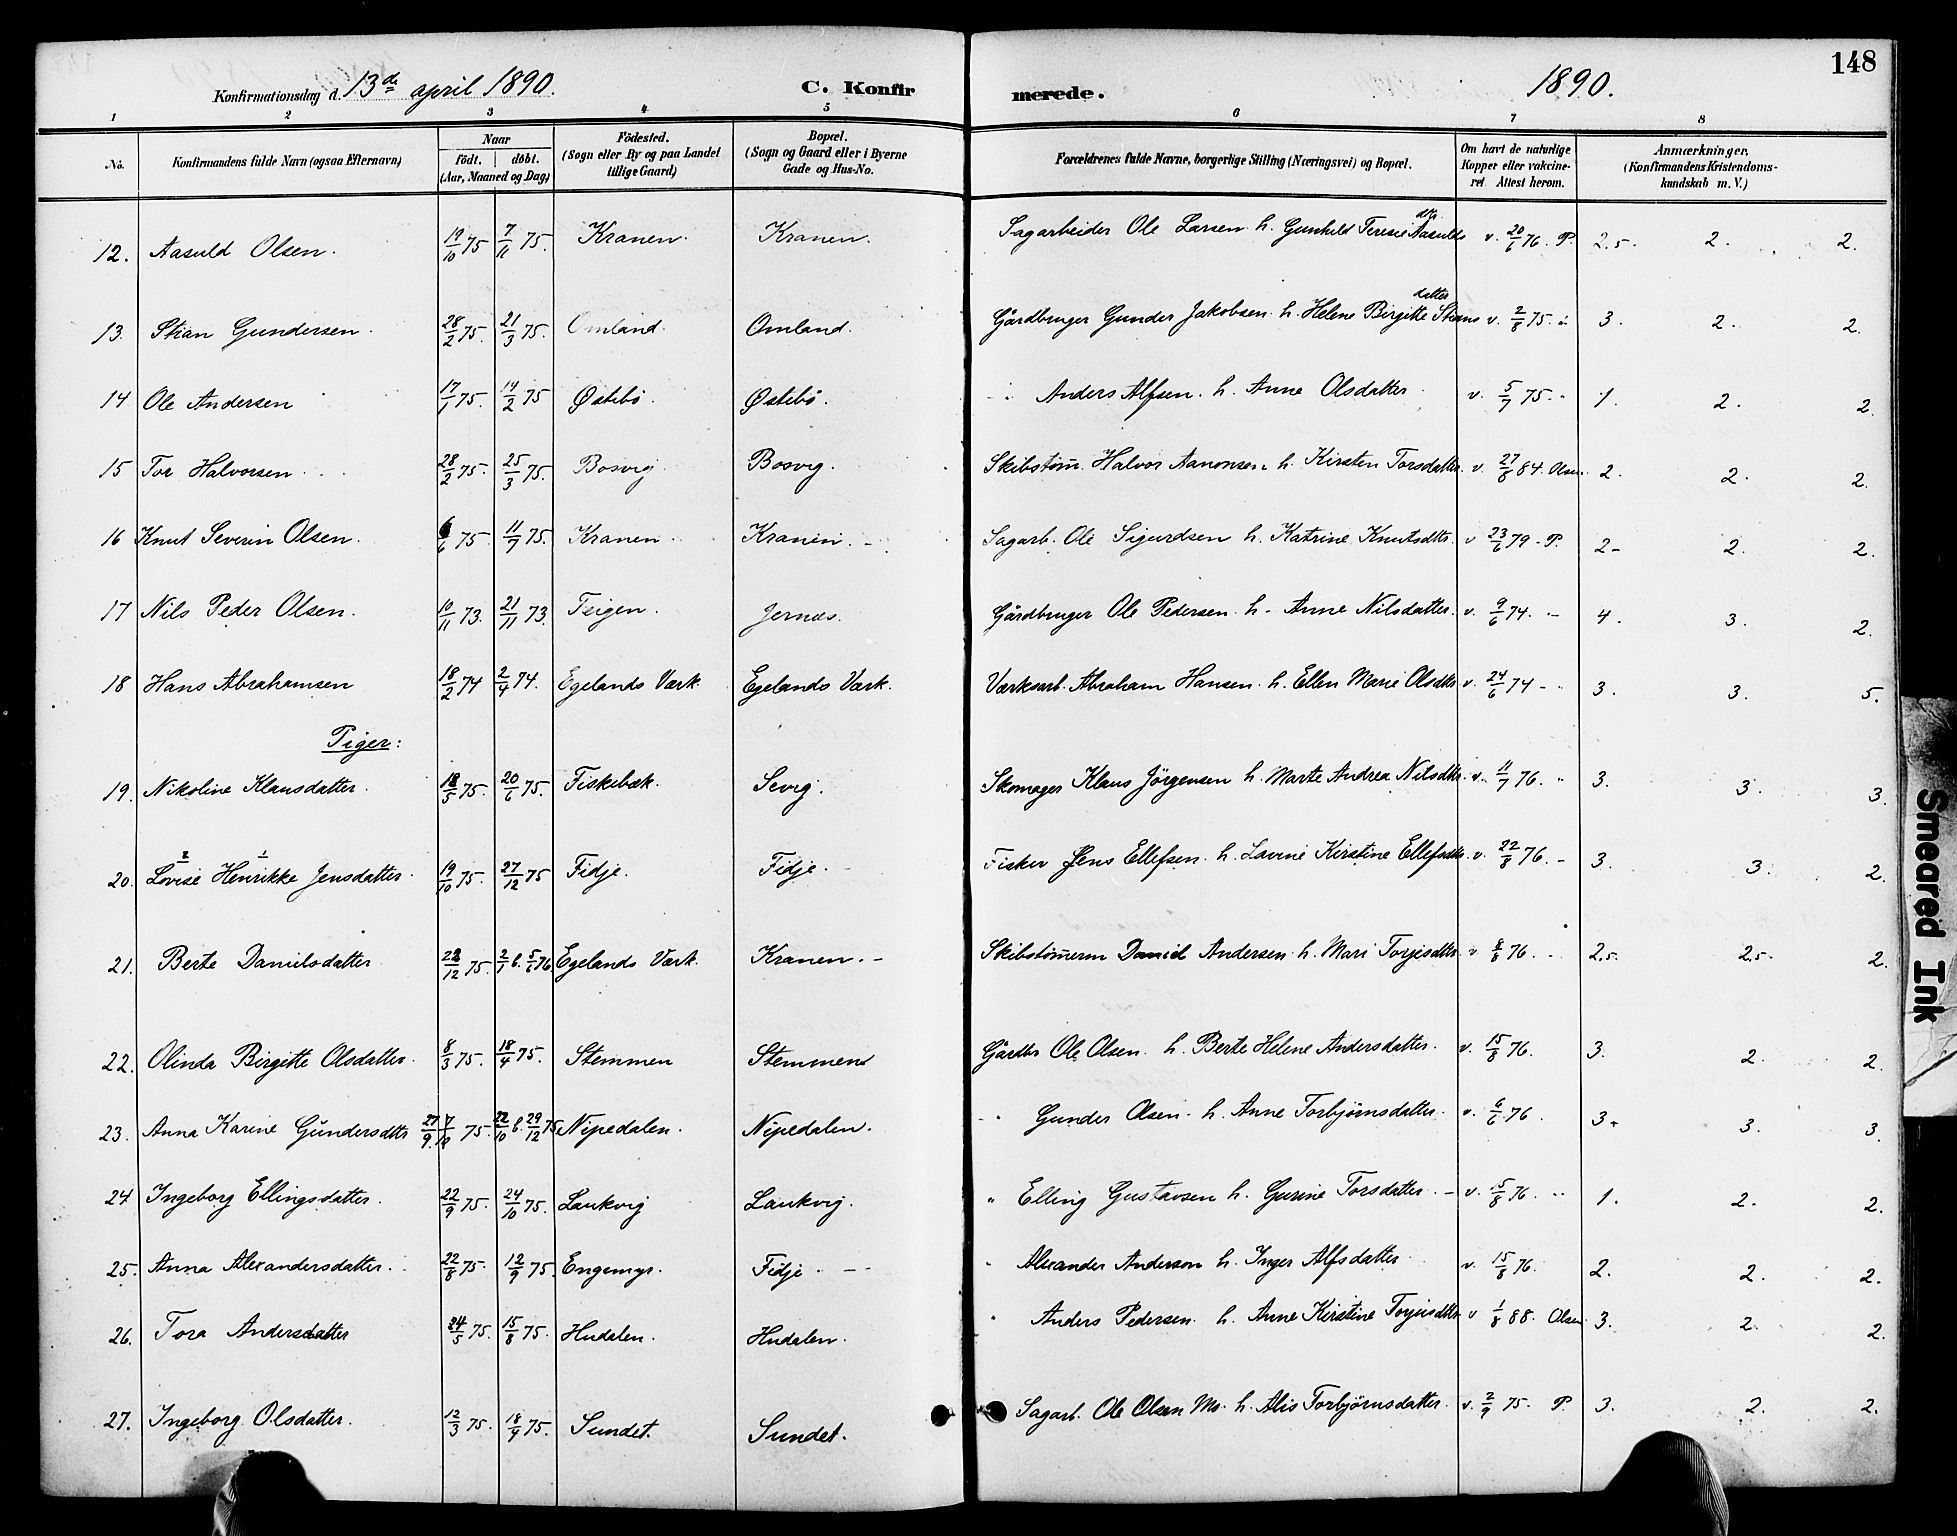 148
Konfirmationsdag d. 13de april 1890. C. Konfirmerede. 1890.
1 2 3 4 5 6 7 8
No. Konfirmandens fulde Navn (ogsaa Efternavn) Naar født. døbt. (Aar, Maaned og Dag) Fødested. (Sogn eller By og paa Landet tillige Gaard) Bopæl. (Sogn og Gaard eller i Byerne Gade og Hus-No. Forældrenes fulde Navne, borgerlige Stilling (Næringsvei) og Bopæl. Om havt de naturlige Kopper eller vakcineret Attest herom. Anmærkninger, (Konfirmandens Kristendomskundskab m. V.)
12. Aasuld Olsen. 19/10 75 7/11 75. Kranen. Kranen. Sagarbeider Ole Larsen h. Gunhild Teresie Aasulds dtr v. 20/6 76. P. 2.5. 2. 2.
13. Stian Gundersen. 28/2 75. 21/3 75. Omland. Omland. Gårdbruger Gunder Jakobsen h. Helene Birgitte Stians datter v. 2/8 75. 3. 2. 2.
14 Ole Andersen 17/1 75. 14/2 75 Østebø. Østebø. " Anders Alfsen. h. Anne Olsdatter v. 5/7 75. " 1. 2. 2.
15 Tor Halvorsen 28/2 75. 25/3 75. Bosvig. Bosvig. Skibstøm. Halvor Aanonsen h. Kirsten Torsdatter. v. 27/8 84. Olsen 2. 2. 2.
16 Knut Severin Olsen. 6/6 75. 11/7 75. Kranen Kranen. Sagarb. Ole Sigurdsen h. Katrine Knutsdtr. v 23/6 79 - P. 2- 2. 2.
17 Nils Peder Olsen. 10/11 73. 21/11 73. Teigen. Jernæs. Gårdbruger Ole Pedersen h. Anne Nilsdatter. v. 9/6 74. - 4. 3. 2.
18 Hans Abrahamsen 18/2 74 2/4 74. Egelands Værk. Egelands Værk. Værksarb. Abraham Hansen. h. Ellen Marie Olsdtr v. 24/6 74 - 3. 3. 5.
Piger:
19. Nikoline Klausdatter. 18/5 75. 20/6 75. Fiskebæk. Sevig. Skomager Klaus Jørgensen h. Marte Andrea Nilsdtr. v. 11/7 76. " 3. 3. 3.
20. Lovise Henrikke Jensdatter. 19/10 75. 27/12 75 Fidje. Fidje. Fisker Jens Ellefsen h. Lavine Kirstine Ellefsdtr. v. 22/8 76. - 3. 3. 2.
21. Berte Danielsdatter 22/12 75. 2/1 b. 5/6 76 Egelands Værk. Kranen. - Skibstømerm Daniel Andersen h. Mari Torjisdtr. v 8/8 76. 2.5. 2.5. 2.
22. Olinda Birgitte Olsdatter. 8/3 75. 18/4 75. Stemmen Stemmen Gårdbr Ole Olsen. h. Berte Helene Andersdatter. v. 15/8 76. 3. 2. 2.
23. Anna Karine Gundersdtr 75. 22/10 b. 29/12 75. Nipedalen. Nipedalen. " Gunder Olsen. h. Anne Torbjørnsdatter. v. 6/6 76. 3+ 3. 3.
24 Ingeborg Ellingsdatter. 22/9 75. 24/10 75. Laukvig Laukvig. " Elling Gustavsen h. Gurine Torsdatter. - v. 15/8 76. " 1. 2. 2.
25. Anna Alexandersdatter. 22/8 75. 12/9 75. Engemyr. Fidje. " Alexander Andersen h. Inger Alfsdatter v. 15/8 76. 2. 2. 2.
26. Tora Andersdatter 24/5 75. 15/8 75. Hudalen. Hudalen. " Anders Pedersen. h. Anne Kirstine Torjusdtr v 1/8 88. Olsen 3. 2. 2.
27. Ingeborg Olsdatter. 12/3 75. 18/9 75. Sundet. Sundet. Sagarb. Ole Olsen Mo h. Alis Torbjørnsdatter. v. 2/9 75. P. 3. 2. 2.
Smeared Ink